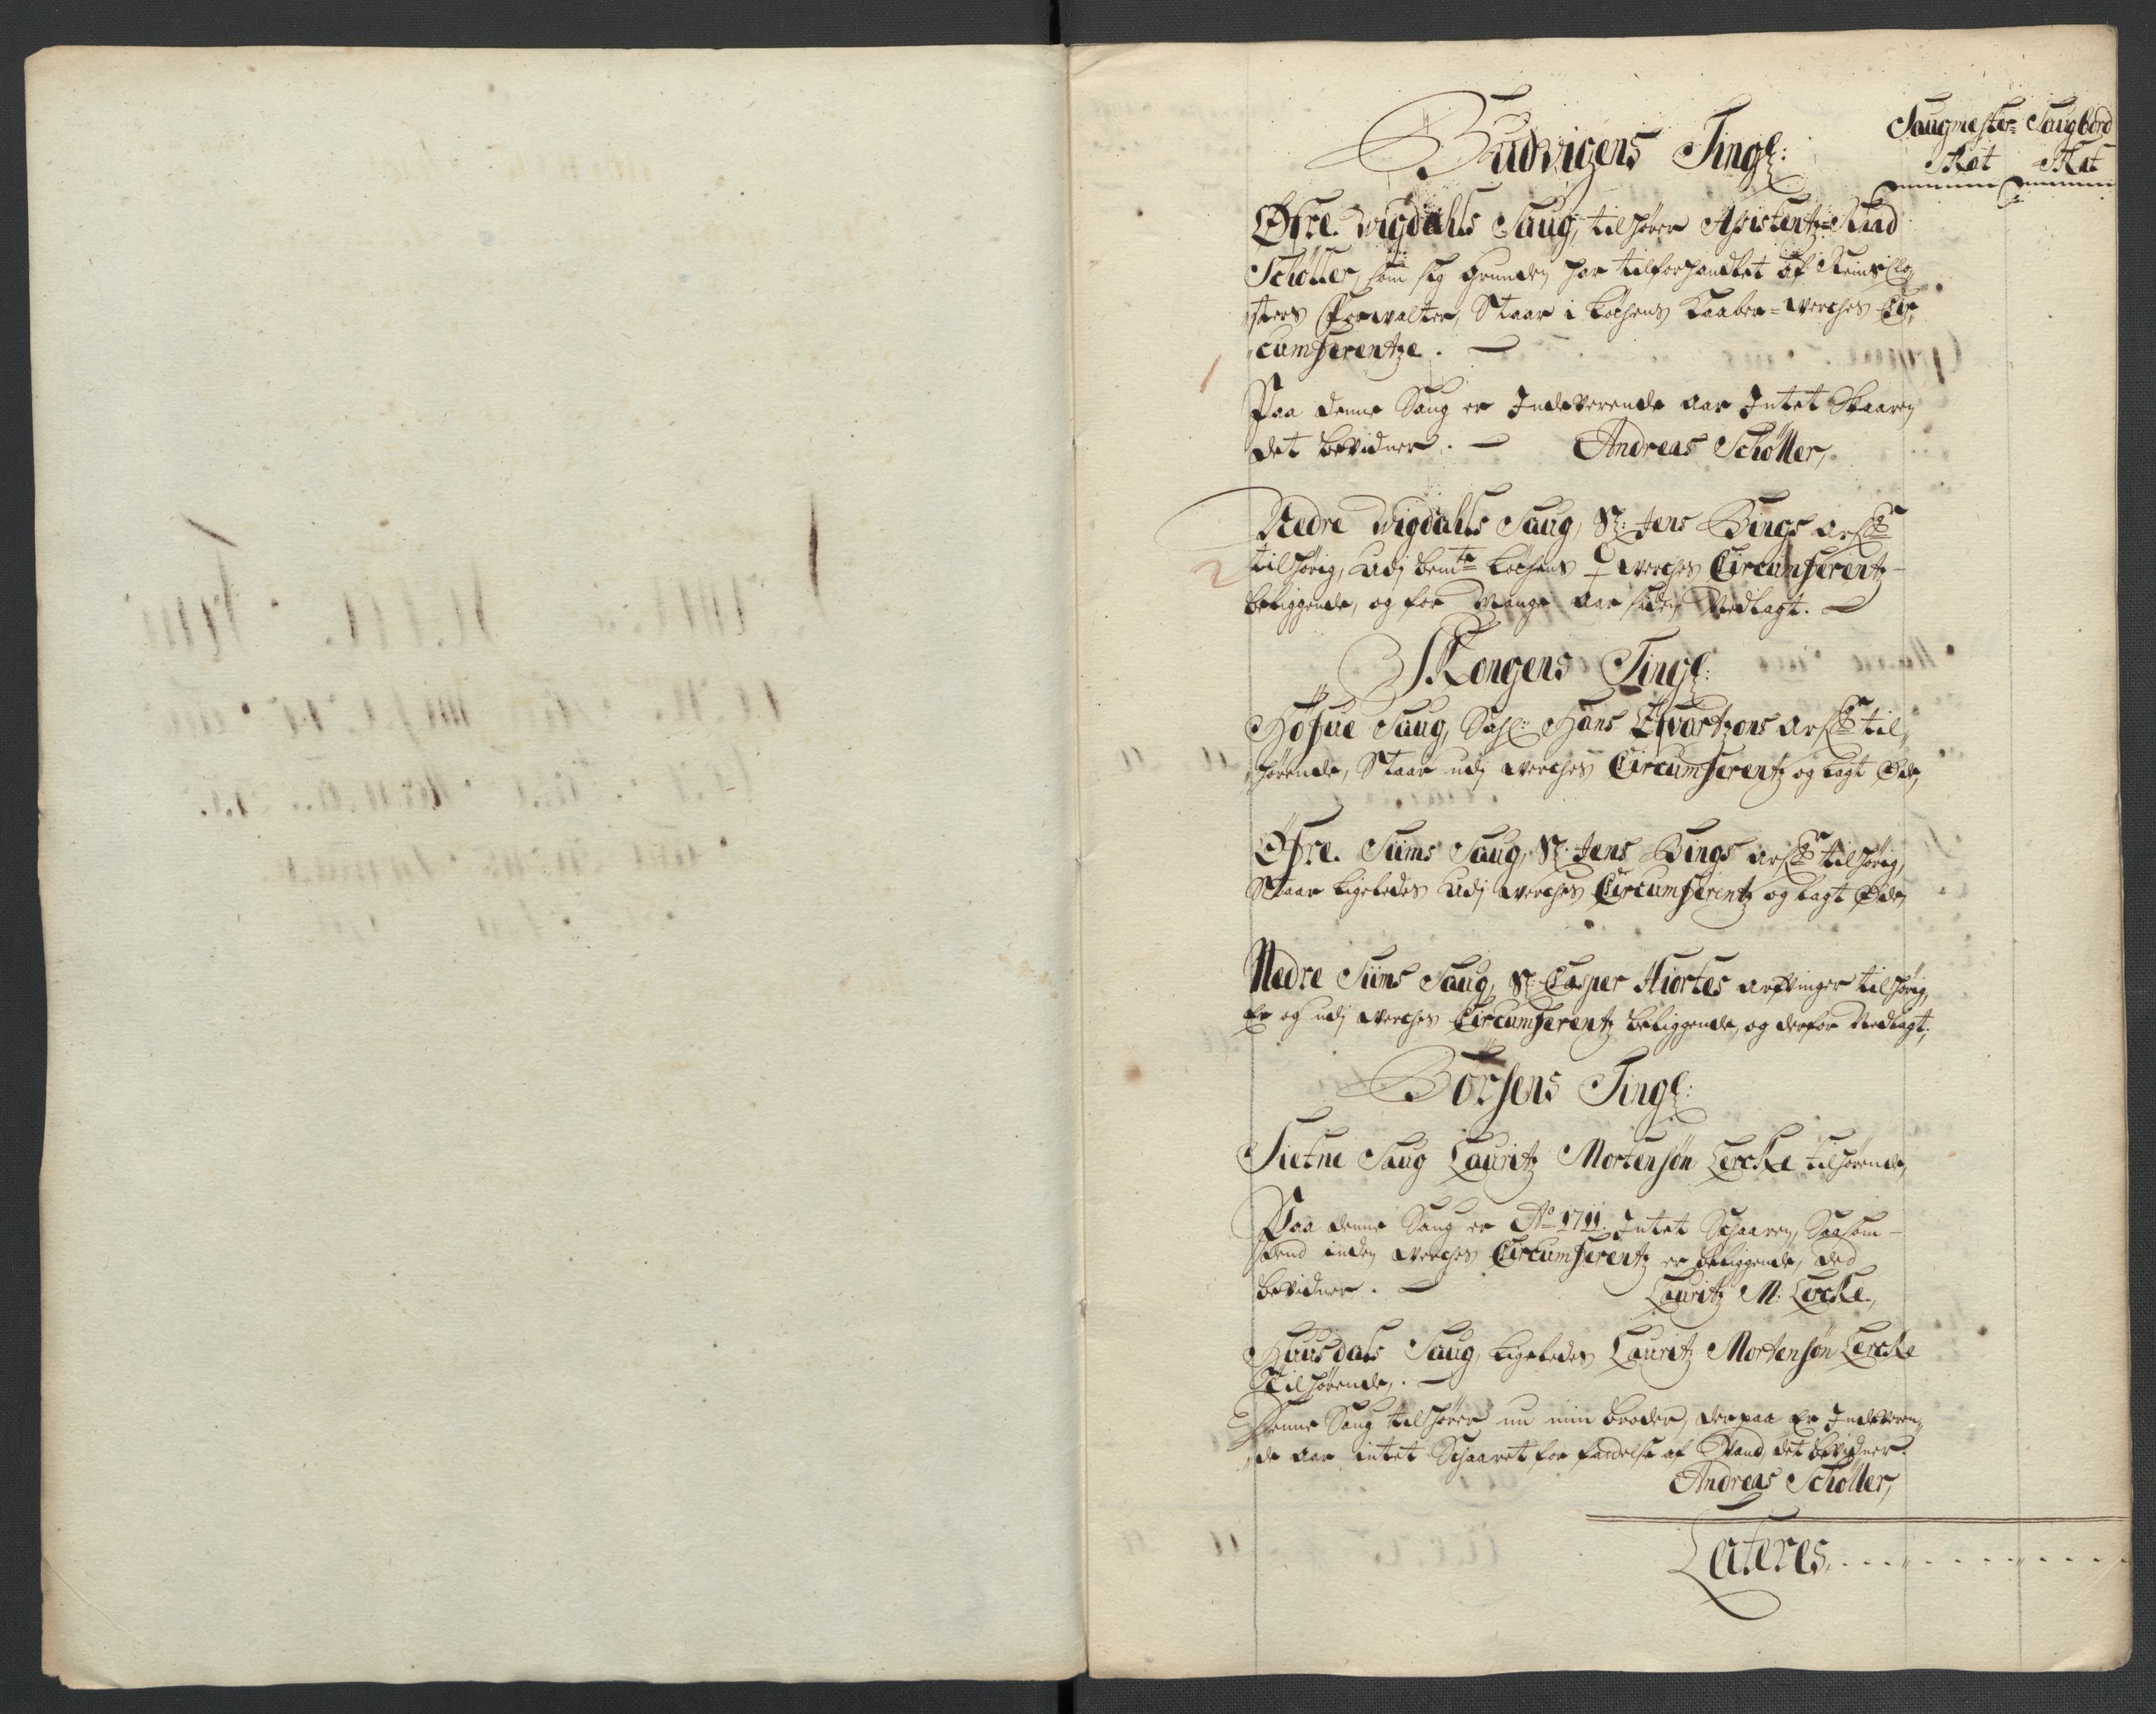 Saugmester= Saugbord
Skat Skat
Budvigens Tingl:
Øfre Wigdahls Saug, tilhører Assistentz-Raad
Schøller, som sig Grunden har tilforhandlet af Reins Clo-
sters Forwalter, Staar i Løchens Kaaber=werches Cir,
cumferentze.
1
Paa denne Saug er Indeverende Aar Intet Skaaren
det bevidner. Andreas Schøller,
Nedre Wigdahls Saug, Sl: Jens Bings arf:
2 tilhørig, Udj bemte Løchens ♀ werches Circumferentz
beliggende, og for mange Aar siden Nedlagt.
Skongens Tingl:
Høfue Saug, Sahl: Hans Efvartzons arf: til,
hørende, Staar udj werches Circumferentz og lagt Øde,
Øfre Sums Saug, Sl: Jens Bings arf: tilhørig,
Staar ligeledes Udj werches Circumferentz og lagt Øde,
Nedre Sums Saug, Sl: Casper Hiortes arfvinger tilhørig,
Er og udj werches Circumferentz beliggende, og derfor Nedlagt.
Börsens Tingl:
Sietne Saug Lauritz Mortensøn Lercke tilhørende,
Paa denne Saug er Ao 1711. Intet Schaaren, Saasom
dend inden werches Circumferentz er beliggende, Det
bevidner. Lauritz M: Lercke,
Huusdals Saug, ligeledes Lauritz Mortensøn Lercke
Tilhørende.
Denne Saug tilhører nu min broder, derpaa Er Indeveren,
de Aar intet Schaaret for forfald af Vand, det bevidner.
Andreas Schøller,
Lateres